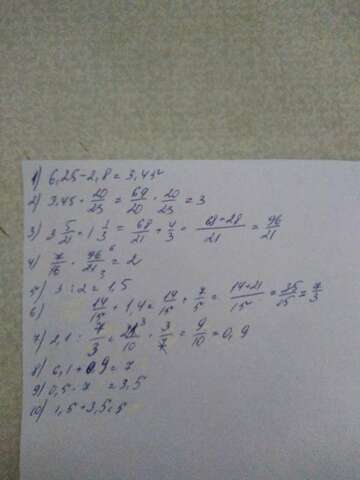 1) 6,25 - 2,8 = 3,45
2) 3,45 · 20/23 = 69/20 · 20/23 = 3
3) 3 5/21 + 1 1/3 = 68/21 + 4/3 = 68+28/21 = 96/21
4) 7/16 · 96/21 = 2
5) 3 : 2 = 1,5
6) 14/15 + 1,4 = 14/15 + 7/5 = 14+21/15 = 35/15 = 7/3
7) 2,1 : 7/3 = 21/10 · 3/7 = 9/10 = 0,9
8) 6,1 + 0,9 = 7
9) 0,5 · 7 = 3,5
10) 1,5 + 3,5 = 5